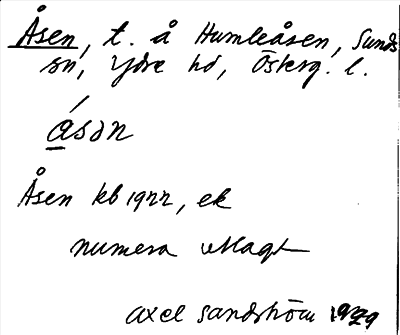 Åsen, t. å Humleåsen, Sunds
sn, Ydre hd, Österg. l.
ásən
Åsen kb 1922, ek
numera utlagt
Axel Sandström 1929